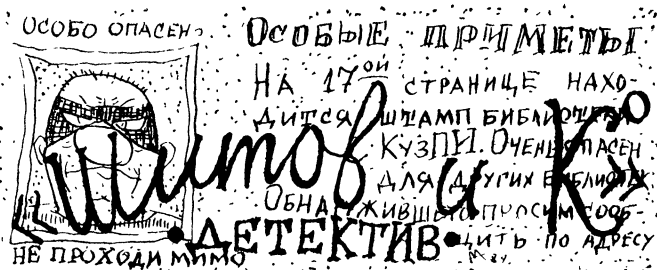 ОСОБО ОПАСЕН
ОСОБЫЕ ПРИМЕТЫ
НА 17ОЙ СТРАНИЦЕ НАХО-
ДИТСЯ ШТАМП БИБЛИОТЕКИ
КУЗПИ. ОЧЕНЬ ОПАСЕН
ДЛЯ ДРУГИХ БИБЛИОТЕК
ОБНАРУЖИВШЕГО ПРОСИМ СООБ-
ЩИТЬ ПО АДРЕСУ
«Шитов и Ко»
•ДЕТЕКТИВ•
НЕ ПРОХОДИ МИМО